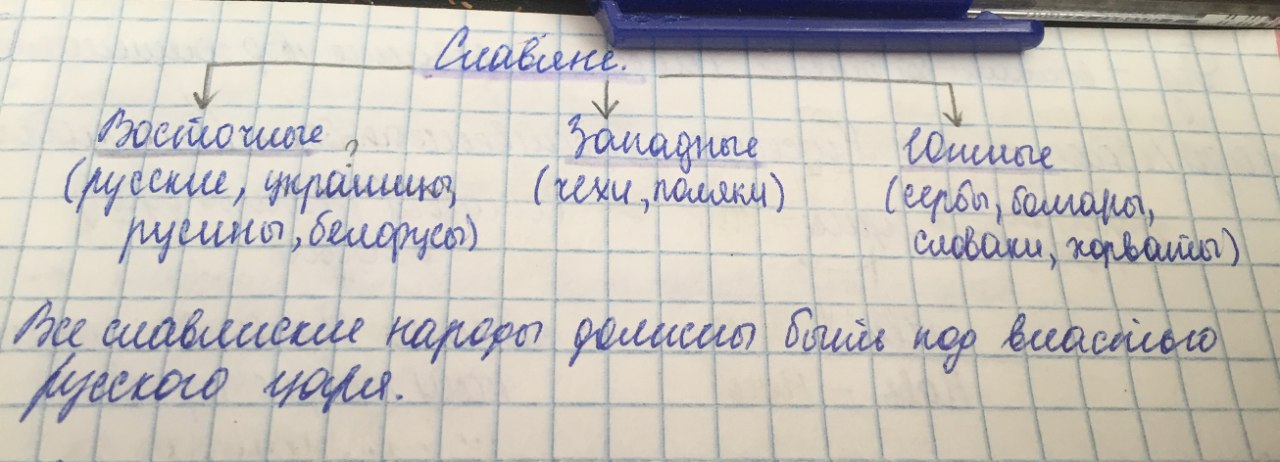 Славяне.
Восточные
Западные
Южные
?
(русские, украинцы,
русины, белорусы)
(чехи, поляки)
(сербы, болгары,
словаки, хорваты)
Все славянские народы должны быть под властью
русского царя.